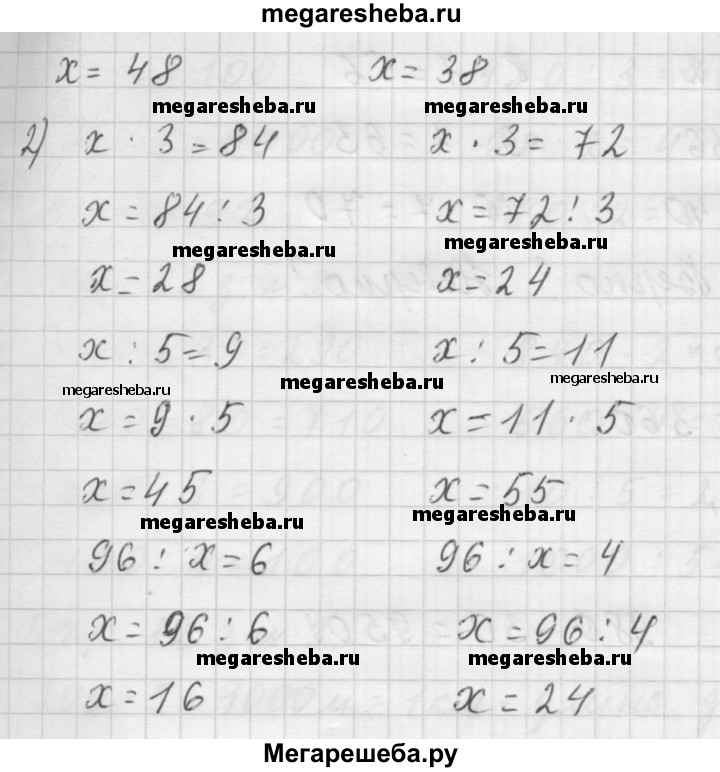 megaresheba.ru
x = 48 x = 38
megaresheba.ru megaresheba.ru
2) x · 3 = 84 x · 3 = 72
x = 84 : 3 x = 72 : 3
megaresheba.ru megaresheba.ru
x = 28 x = 24
x : 5 = 9 x : 5 = 11
megaresheba.ru megaresheba.ru megaresheba.ru
x = 9 · 5 x = 11 · 5
x = 45 x = 55
megaresheba.ru megaresheba.ru
96 : x = 6 96 : x = 4
x = 96 : 6 x = 96 : 4
megaresheba.ru megaresheba.ru
x = 16 x = 24
Мегарешеба.ру